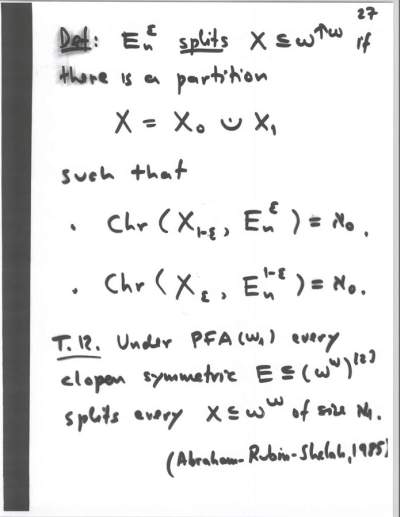 27
Def: E_n^ε splits X ⊆ ω^↑ω if
there is a partition
X = X_0 ∪ X_1
such that
. Chr (X_{1-ε}, E_n^ε) = ℵ_0.
. Chr (X_ε, E_n^{1-ε}) = ℵ_0.
T.12. Under PFA(ω_1) every
clopen symmetric E ⊆ (ω^ω)^[2]
splits every X ⊆ ω^ω of size ℵ_1.
(Abraham-Rubin-Shelah, 1985)